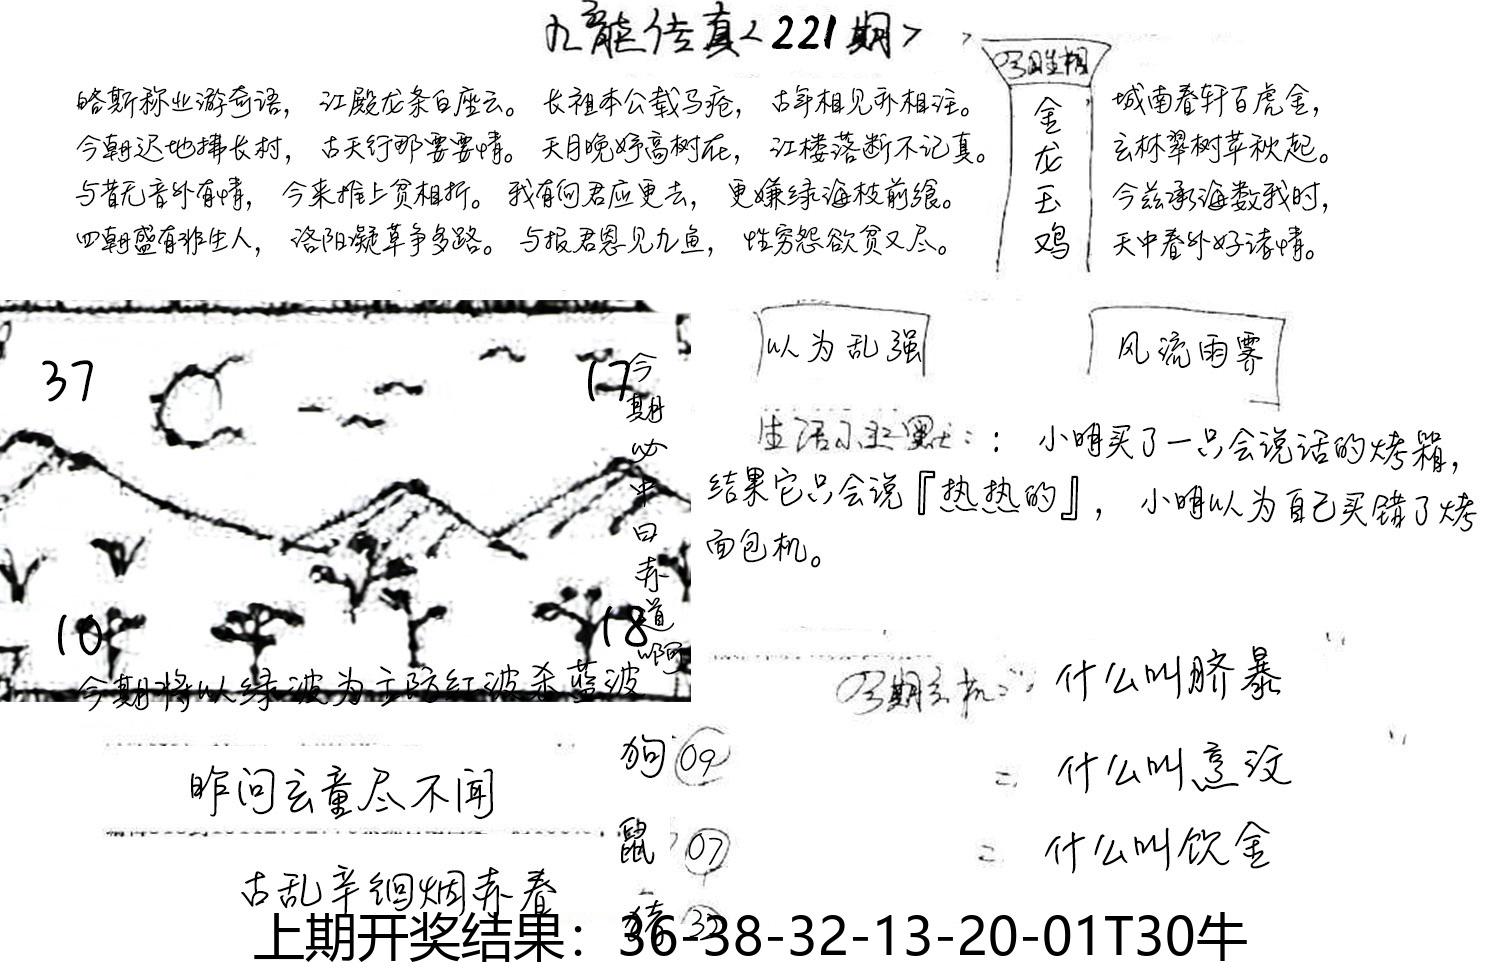 九龙传真<221期>
略斯称业游奇语， 江殿龙条白座云。 长祖本公载马疮， 古年相见乔相注。
今朝迟地拂长村， 古天行那要要情。 天月晚妤高树在， 江楼落断不记真。
与昔无音外有情， 今来推上贫相折。 我有何君应更去， 更嫌绿海枝前缤。
四朝盛有非生人， 洛阳凝草争多路。 与报君恩见九鱼， 性穷怨欲贫又尽。
金
龙
玉
鸡
城南春轩百虎金，
玄林翠树苹秋起。
今兹承海数我时，
天中春外好诸情。
以为乱强
风流雨霁
生活幽默：： 小明买了一只会说话的烤箱，
结果它只会说『热热的』， 小明以为自己买错了烤
面包机。
37
17
10
18
今期必中曰赤道啊
今期将以绿波为主防红波杀蓝波
昨问云童尽不闻
古乱辛徊烟赤春
狗 09
鼠 07
猪
今期玄机：： 什么叫脐暴
= 什么叫烹汶
= 什么叫饮金
上期开奖结果：36-38-32-13-20-01T30牛